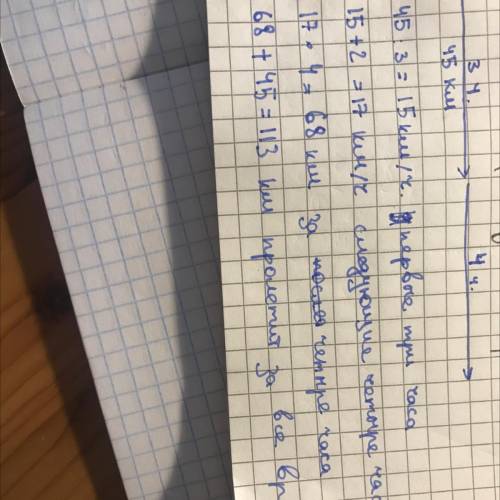 3 ч. 4 ч.
45 км
45 : 3 = 15 км/ч. первые три часа
15 + 2 = 17 км/ч следующие четыре час
17 • 4 = 68 км за четыре часа
68 + 45 = 113 км пролетит за все вр